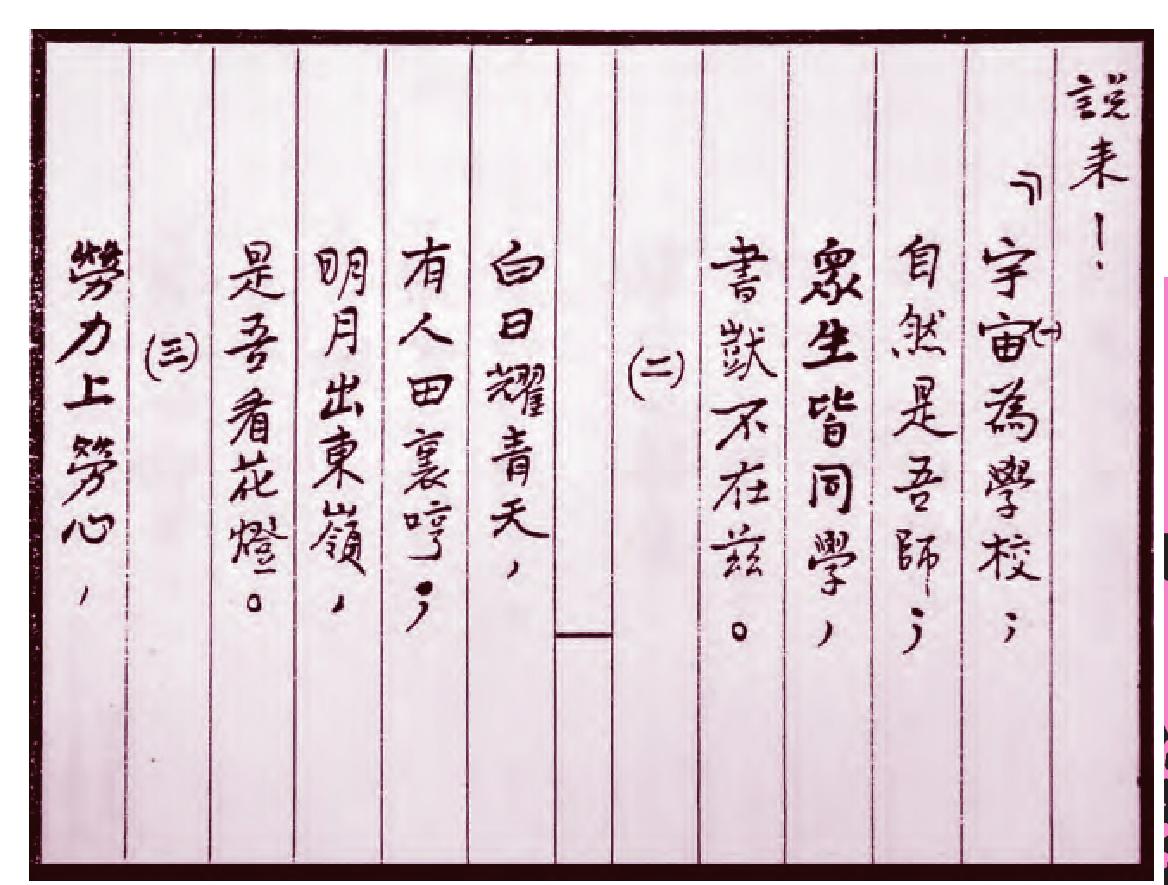 説来！
『(一)
宇宙為學校；
自然是吾師；
衆生皆同學，
書獃不在茲。
(二)
白日耀青天，
有人田裏哼；
明月出東嶺，
是吾看花燈。
(三)
勞力上勞心，